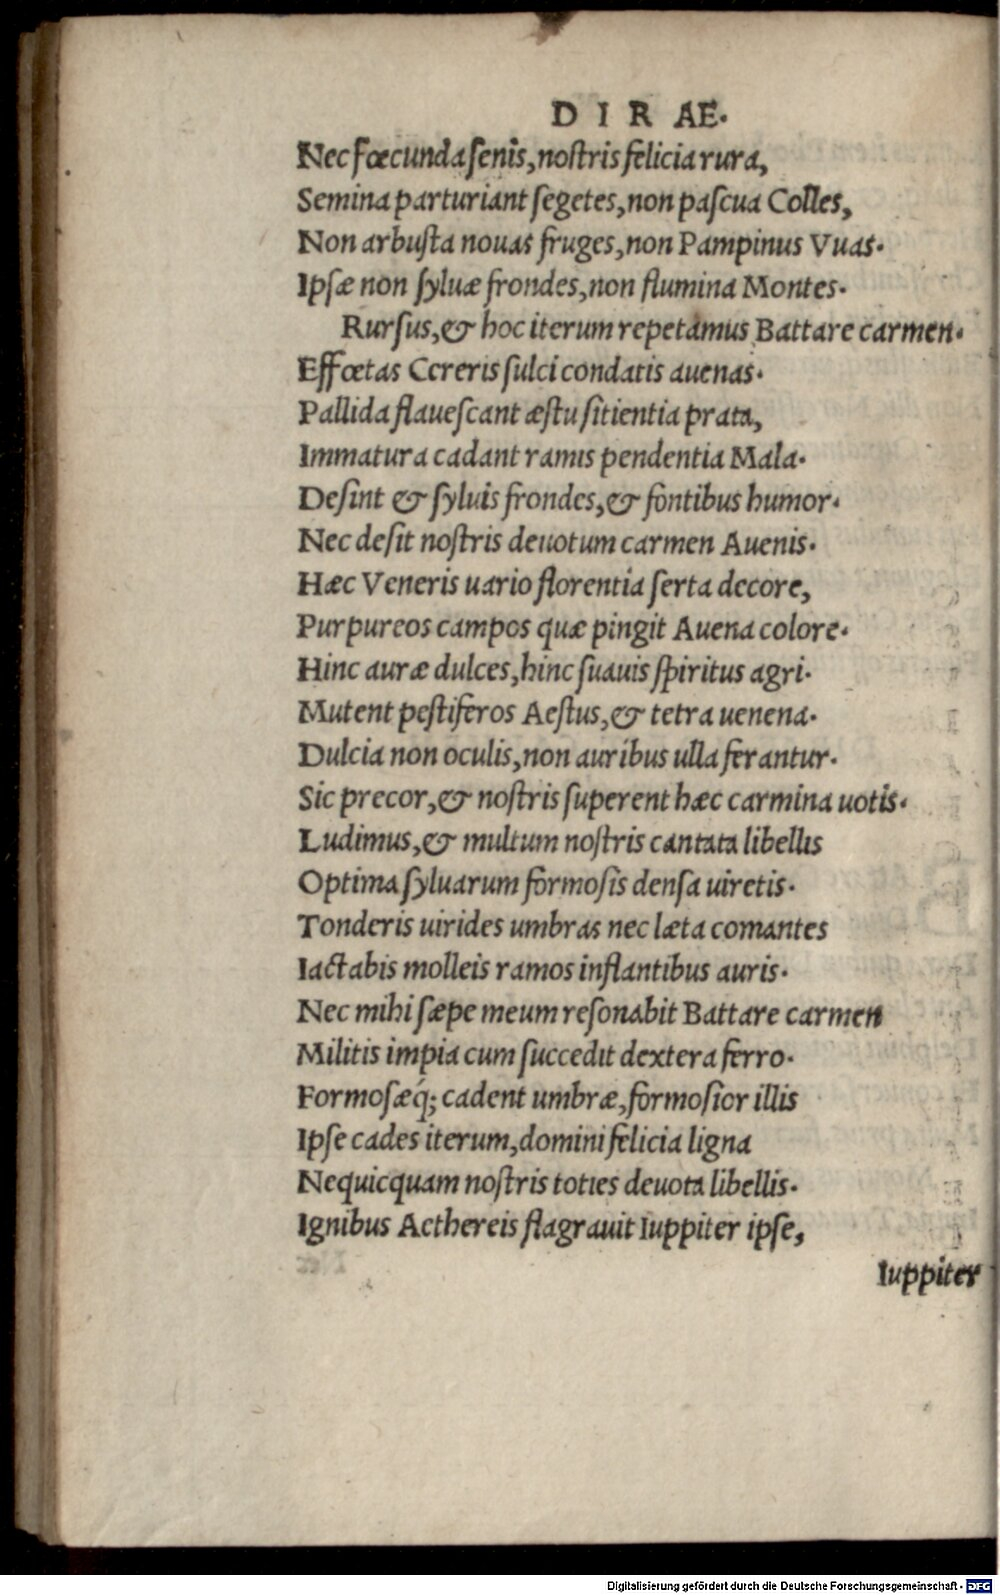 DIRAE.
Nec fœcunda senis, nostris felicia rura,
Semina parturiant segetes, non pascua Colles,
Non arbusta nouas fruges, non Pampinus Vuas.
Ipsæ non syluæ frondes, non flumina Montes.
Rursus, & hoc iterum repetamus Battare carmen.
Effœtas Cereris sulci condatis auenas.
Pallida flauescant æstu sitientia prata,
Immatura cadant ramis pendentia Mala.
Desint & syluis frondes, & fontibus humor.
Nec desit nostris deuotum carmen Auenis.
Hæc Veneris uario florentia serta decore,
Purpureos campos quæ pingit Auena colore.
Hinc auræ dulces, hinc suauis spiritus agri.
Mutent pestiferos Aestus, & tetra uenena.
Dulcia non oculis, non auribus ulla ferantur.
Sic precor, & nostris superent hæc carmina uotis.
Ludimus, & multum nostris cantata libellis
Optima syluarum formosis densa uiretis.
Tonderis uirides umbras nec læta comantes
Iactabis molleis ramos inflantibus auris.
Nec mihi sæpe meum resonabit Battare carmen
Militis impia cum succedit dextera ferro.
Formosæq́; cadent umbræ, formosior illis
Ipse cades iterum, domini felicia ligna
Nequicquam nostris toties deuota libellis.
Ignibus Aethereis flagrauit Iuppiter ipse,
Iuppiter
Digitalisierung gefördert durch die Deutsche Forschungsgemeinschaft - DFG